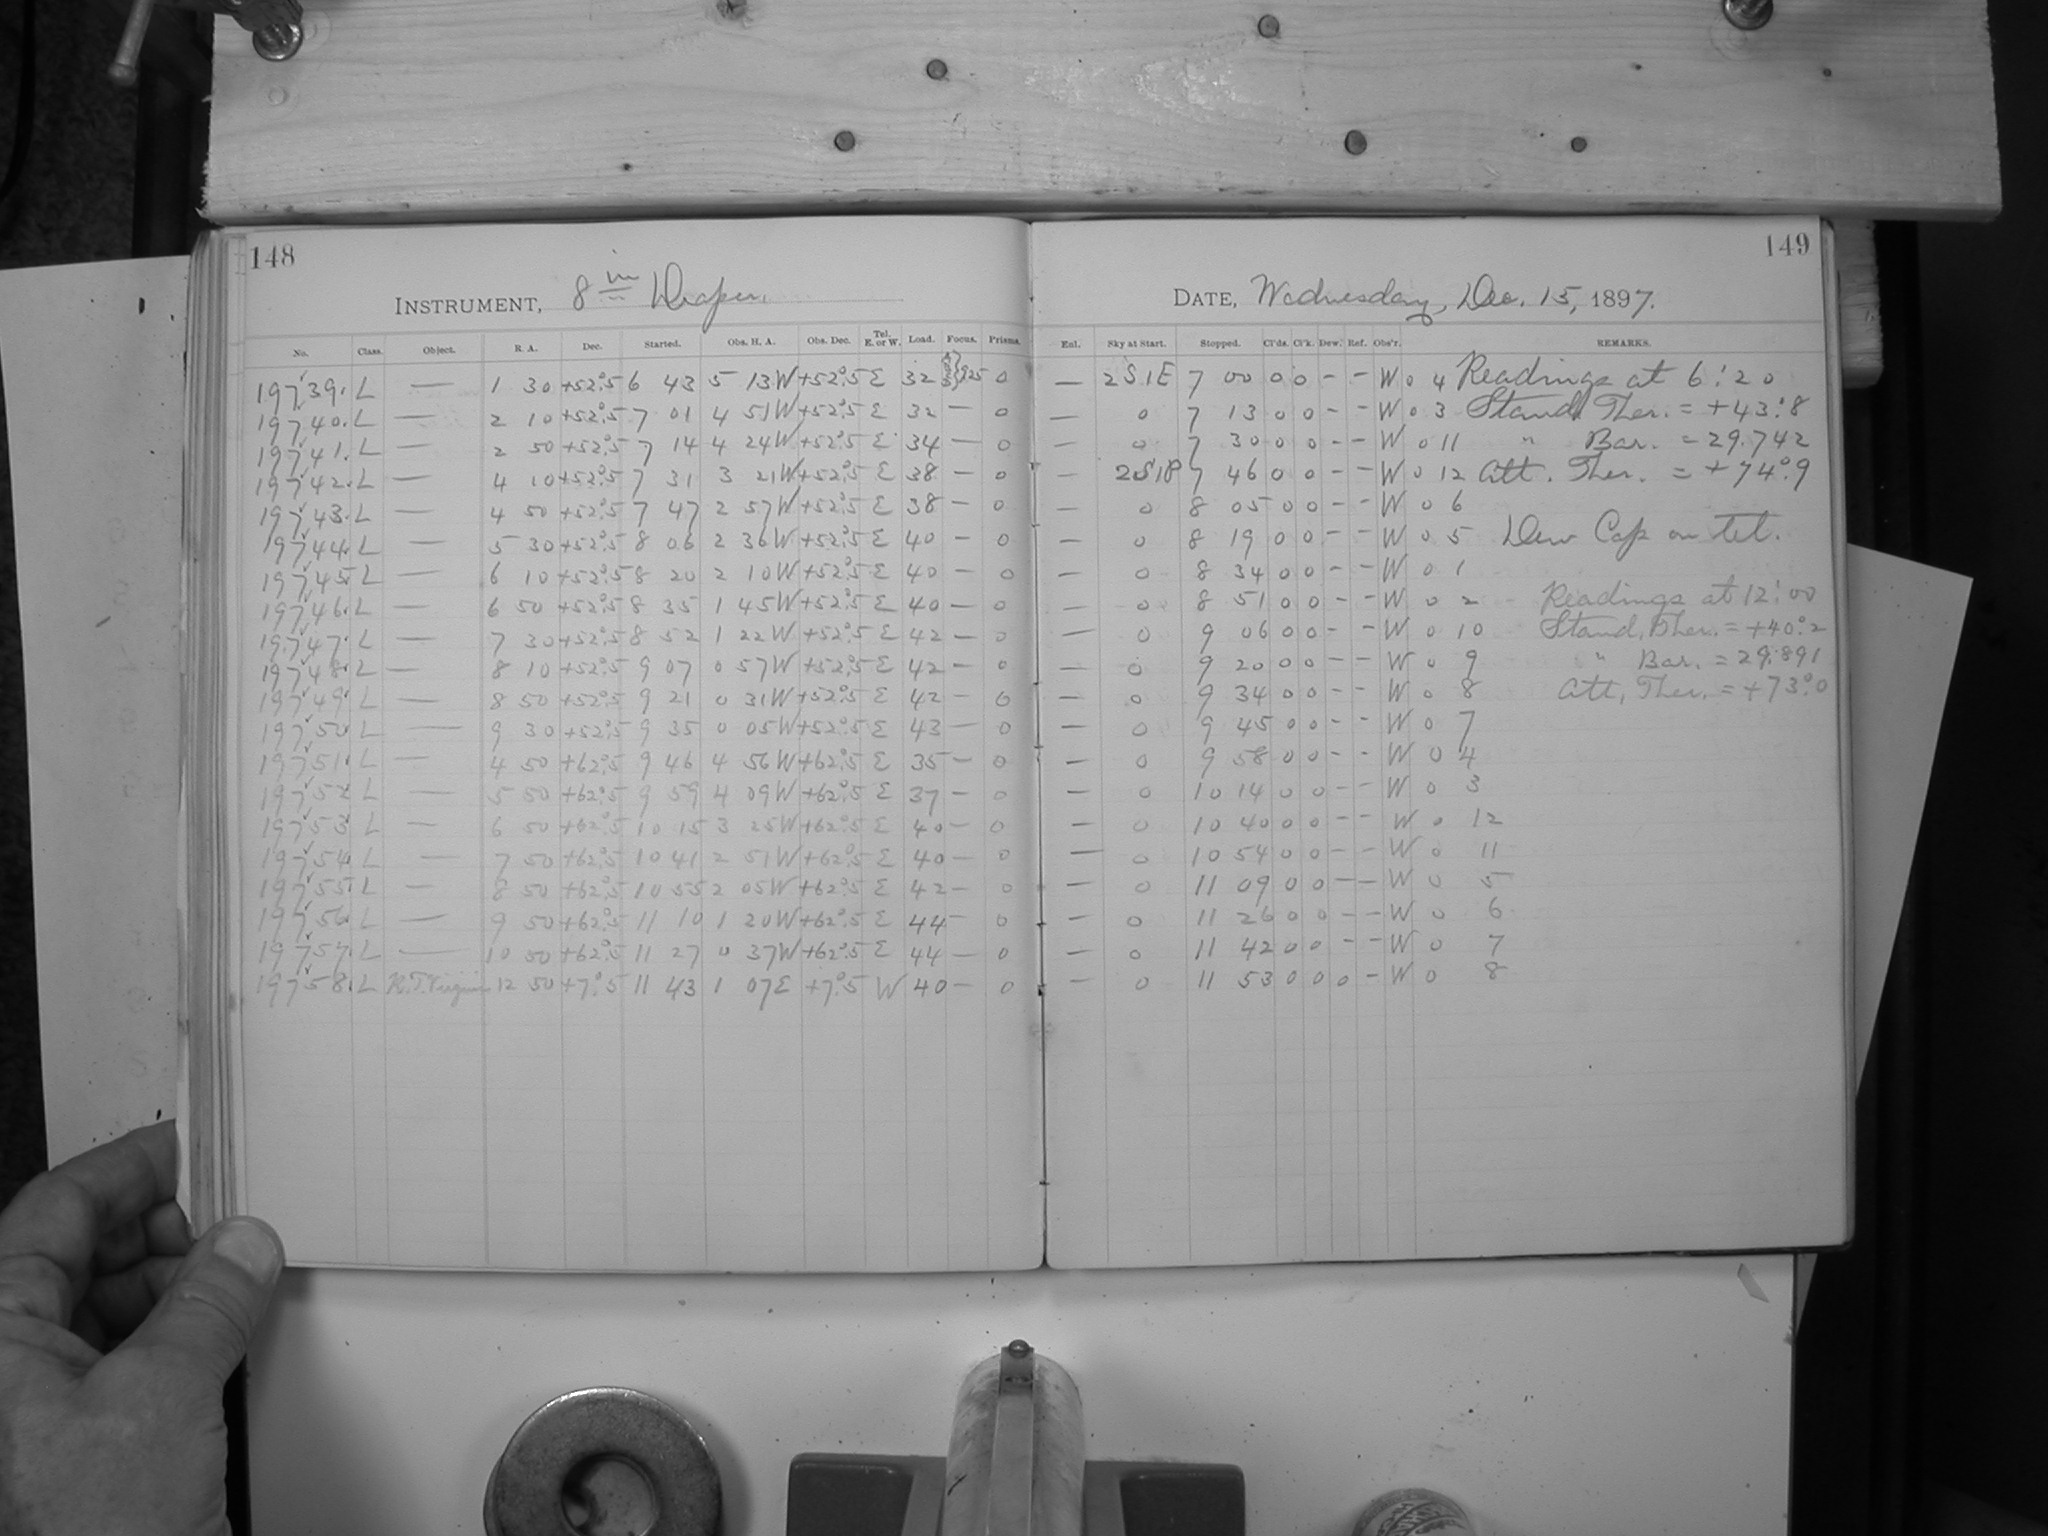 148
149
INSTRUMENT, 8 in Draper.
DATE, Wednesday, Dec. 15, 1897.
No. Class. Object. R. A. Dec. Started. Obs. H. A. Obs. Dec. Tel. E. or W. Load. Focus. Prisms. Enl. Sky at Start. Stopped. Cl'ds. Cl'k. Dew. Ref. Obs'r. REMARKS.
19739. L — 1 30 +52°.5 6 43 5 13W +52°.5 E 32 0 — 2S1E 7 00 0 0 - - W 0 4 Readings at 6:20
19740. L — 2 10 +52°.5 7 01 4 51W +52°.5 E 32 — 0 — 0 7 13 0 0 - - W 0 3 Stand. Ther. = +43°.8
19741. L — 2 50 +52°.5 7 14 4 24W +52°.5 E 34 — 0 — 0 7 30 0 0 - - W 0 11 " Bar. = 29.742
19742. L — 4 10 +52°.5 7 31 3 21W +52°.5 E 38 — 0 — 2S1P 7 46 0 0 - - W 0 12 Att. Ther. = +74°.9
19743. L — 4 50 +52°.5 7 47 2 57W +52°.5 E 38 — 0 — 0 8 05 0 0 - - W 0 6
19744. L — 5 30 +52°.5 8 06 2 36W +52°.5 E 40 — 0 — 0 8 19 0 0 - - W 0 5 Dew Cap on tel.
19745. L — 6 10 +52°.5 8 20 2 10W +52°.5 E 40 — 0 — 0 8 34 0 0 - - W 0 1
19746. L — 6 50 +52°.5 8 35 1 45W +52°.5 E 40 — 0 — 0 8 51 0 0 - - W 0 2 Readings at 12:00
19747. L — 7 30 +52°.5 8 52 1 22W +52°.5 E 42 — 0 — 0 9 06 0 0 - - W 0 10 Stand. Ther. = +40°.2
19748. L — 8 10 +52°.5 9 07 0 57W +52°.5 E 42 — 0 — 0 9 20 0 0 - - W 0 9 " Bar. = 29.891
19749. L — 8 50 +52°.5 9 21 0 31W +52°.5 E 42 — 0 — 0 9 34 0 0 - - W 0 8 Att. Ther. = +73°.0
19750. L — 9 30 +52°.5 9 35 0 05W +52°.5 E 43 — 0 — 0 9 45 0 0 - - W 0 7
19751. L — 4 50 +62°.5 9 46 4 56W +62°.5 E 35 — 0 — 0 9 58 0 0 - - W 0 4
19752 L — 5 50 +62°.5 9 59 4 09W +62°.5 E 37 — 0 — 0 10 14 0 0 - - W 0 3
19753. L — 6 50 +62°.5 10 15 3 25W +62°.5 E 40 — 0 — 0 10 40 0 0 - - W 0 12
19754. L — 7 50 +62°.5 10 41 2 51W +62°.5 E 40 — 0 — 0 10 54 0 0 - - W 0 11
19755. L — 8 50 +62°.5 10 55 2 05W +62°.5 E 42 — 0 — 0 11 09 0 0 - - W 0 5
19756. L — 9 50 +62°.5 11 10 1 20W +62°.5 E 44 — 0 — 0 11 26 0 0 - - W 0 6
19757. L — 10 50 +62°.5 11 27 0 37W +62°.5 E 44 — 0 — 0 11 42 0 0 - - W 0 7
19758. L R.T.Virginis 12 50 +7°.5 11 43 1 07E +7°.5 W 40 — 0 — 0 11 53 0 0 0 - W 0 8